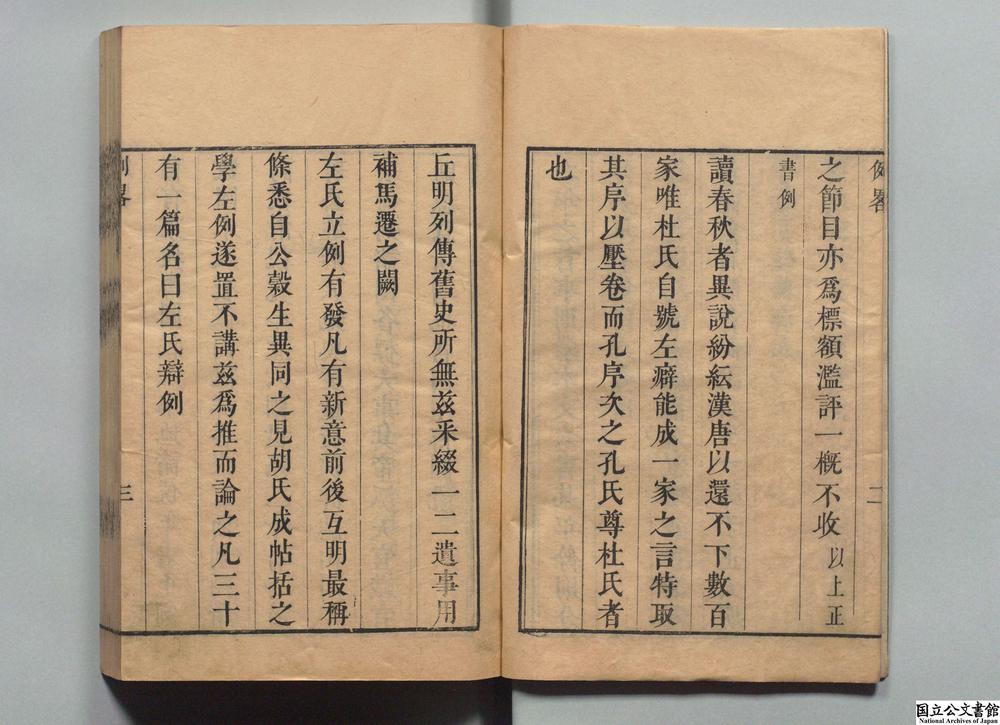 例畧
二
之節目亦爲標額濫評一槪不收以上正
書例
讀春秋者異說紛紜漢唐以還不下數百
家唯杜氏自號左癖能成一家之言特取
其序以壓卷而孔序次之孔氏尊杜氏者
也
丘明列傳舊史所無茲采綴一二遺事用
補馬遷之闕
左氏立例有發凡有新意前後互明最稱
條悉自公穀生異同之見胡氏成帖括之
學左例遂置不講茲爲推而論之凡三十
有一篇名曰左氏辯例
例畧
三
国立公文書館
National Archives of Japan